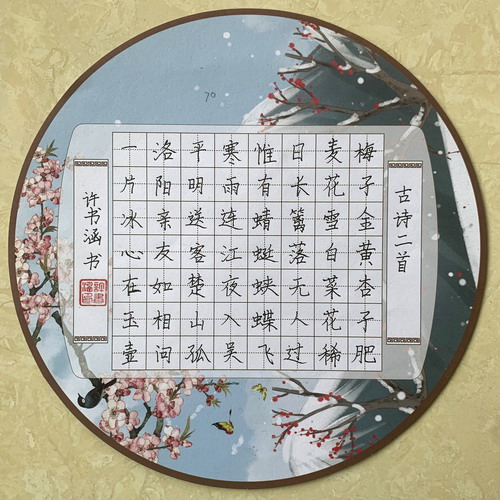 70
古诗二首
梅子金黄杏子肥
麦花雪白菜花稀
日长篱落无人过
惟有蜻蜓蛱蝶飞
寒雨连江夜入吴
平明送客楚山孤
洛阳亲友如相问
一片冰心在玉壶
许书涵书